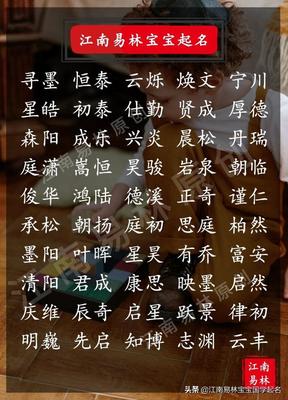 江南易林宝宝起名
寻墨 恒泰 云烁 焕文 宁川
星皓 初泰 仕勤 贤成 厚德
森阳 成乐 兴炎 晨松 丹瑞
庭潇 嵩恒 昊骏 岩泉 朝临
俊华 鸿陆 德溪 正奇 谨仁
承松 朝扬 庭初 思庭 柏然
墨阳 叶晖 星昊 有乔 富安
清阳 君成 康思 映墨 启然
庆维 辰奇 启星 跃景 律初
明巍 先启 知博 志渊 云丰
江南
易林
头条 @江南易林宝宝国学起名